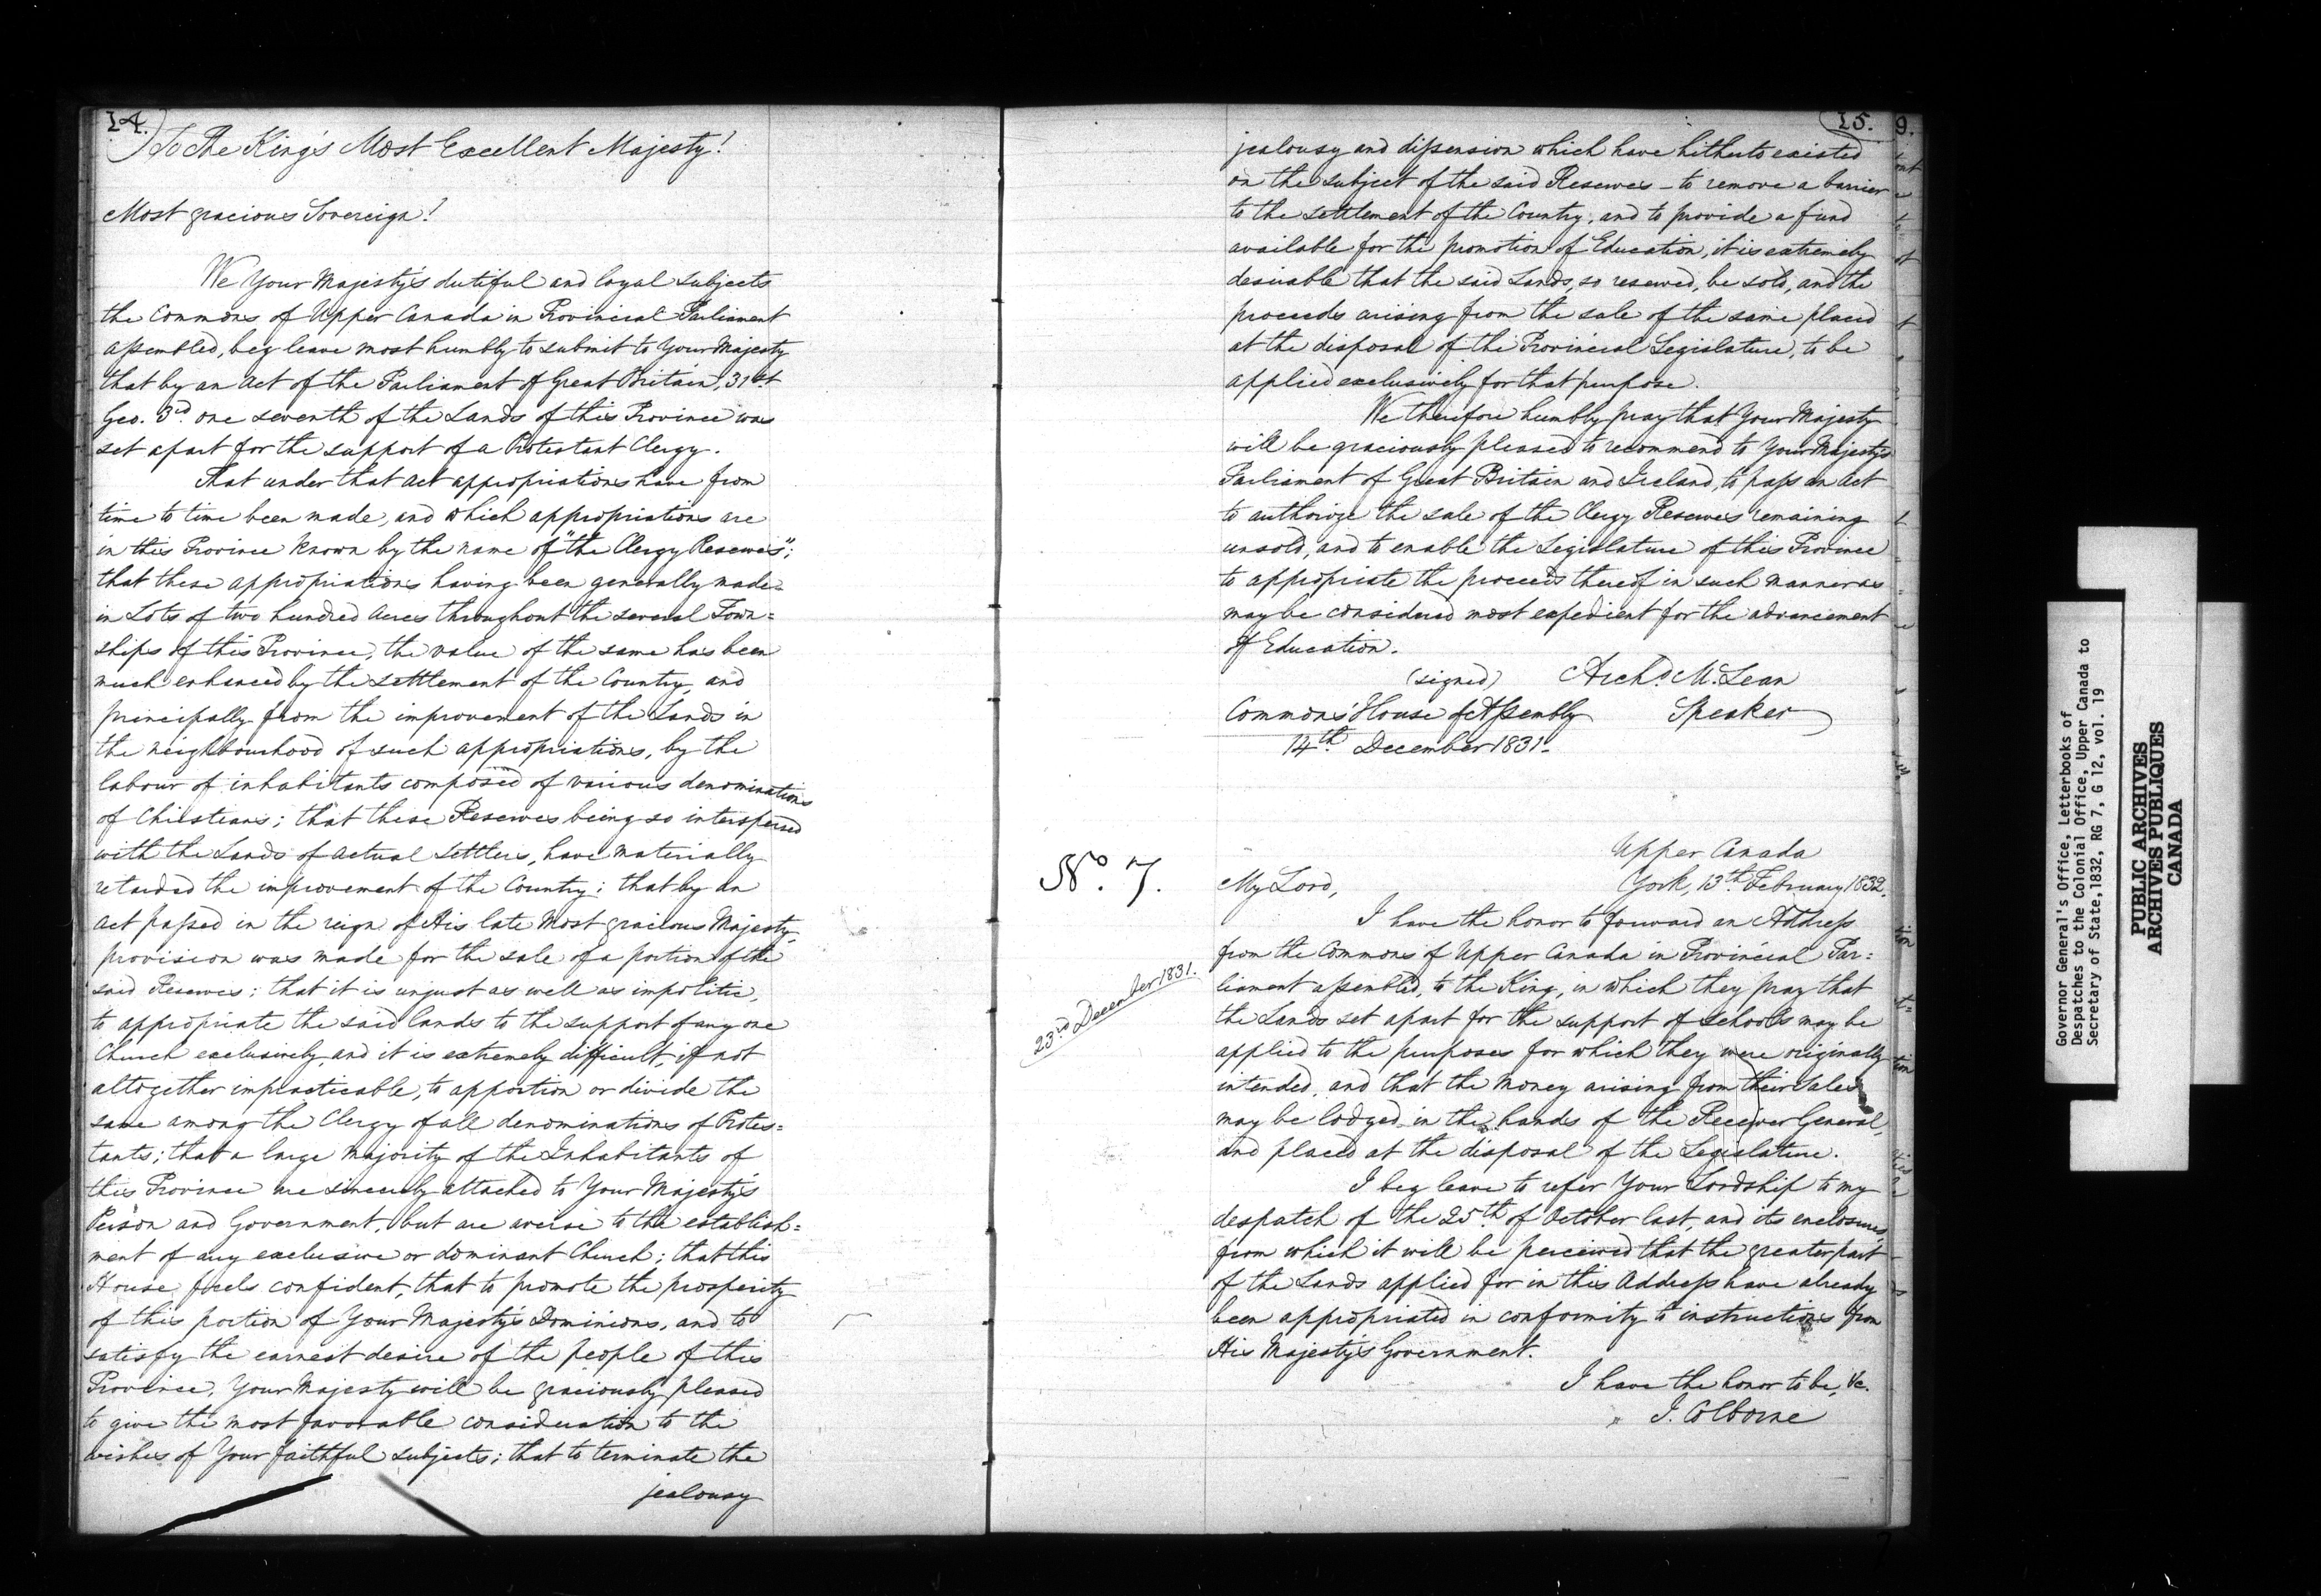 14.
To The King's Most Excellent Majesty!
Most gracious Sovereign!
We Your Majesty's dutiful and loyal subjects
the Commons of Upper Canada in Provincial Parliament
assembled, beg leave most humbly to submit to Your Majesty
that by an Act of the Parliament of Great Britain, 31st
Geo. 3rd one seventh of the Lands of this Province was
set apart for the support of a Protestant Clergy.
That under that Act appropriations have from
time to time been made, and which appropriations are
in this Province known by the name of "the Clergy Reserves";
that these appropriations having been generally made
in Lots of two hundred Acres throughout the several Town=
ships of this Province, the value of the same has been
much enhanced by the settlement of the Country, and
principally from the improvement of the Lands in
the neighbourhood of such appropriations, by the
labour of inhabitants composed of various denominations
of Christians; that these Reserves being so interspersed
with the Lands of actual Settlers, have materially
retarded the improvement of the Country; that by an
Act passed in the reign of His late Most gracious Majesty,
provision was made for the sale of a portion of the
said Reserves; that it is unjust as well as impolitic,
to appropriate the said lands to the support of any one
Church exclusively, and it is extremely difficult, if not
altogether impracticable, to apportion or divide the
same among the Clergy of all denominations of Protes=
tants; that a large majority of the Inhabitants of
this Province are sincerely attached to Your Majesty's
Person and Government, but are averse to the establish=
ment of any exclusive or dominant Church; that this
House feels confident, that to promote the prosperity
of this portion of Your Majesty's Dominions, and to
satisfy the earnest desire of the people of this
Province, Your Majesty will be graciously pleased
to give the most favorable consideration to the
wishes of Your faithful subjects; that to terminate the
jealousy
15.
jealousy and dissension which have hitherto existed
on the subject of the said Reserves - to remove a barrier
to the settlement of the Country, and to provide a fund
available for the promotion of Education, it is extremely
desirable that the said Lands, so reserved, be sold, and the
proceeds arising from the sale of the same placed
at the disposal of the Provincial Legislature, to be
applied exclusively for that purpose.
We therefore humbly pray that Your Majesty
will be graciously pleased to recommend to Your Majesty's
Parliament of Great Britain and Ireland, to pass an Act
to authorize the sale of the Clergy Reserves remaining
unsold, and to enable the Legislature of this Province
to appropriate the proceeds thereof in such manner as
may be considered most expedient for the advancement
of Education.
(signed) Archd. McLean
Commons' House of Assembly Speaker
14th December 1831.
Upper Canada
No. 7. My Lord, York, 13th February 1832.
I have the honor to forward an Address
from the Commons of Upper Canada in Provincial Par=
23rd December 1831.
liament assembled, to the King, in which they pray that
the Lands set apart for the support of schools may be
applied to the purposes for which they were originally
intended, and that the money arising from their sales
may be lodged in the hands of the Receiver General,
and placed at the disposal of the Legislature.
I beg leave to refer Your Lordship to my
despatch of the 25th of October last, and its enclosures,
from which it will be perceived that the greater part
of the Lands applied for in this Address have already
been appropriated in conformity to instructions from
His Majesty's Government.
I have the honor to be, &c.
J. Colborne
9.
Governor General's Office, Letterbooks of
Despatches to the Colonial Office, Upper Canada to
Secretary of State, 1832, RG 7, G 12, vol. 19
PUBLIC ARCHIVES
ARCHIVES PUBLIQUES
CANADA